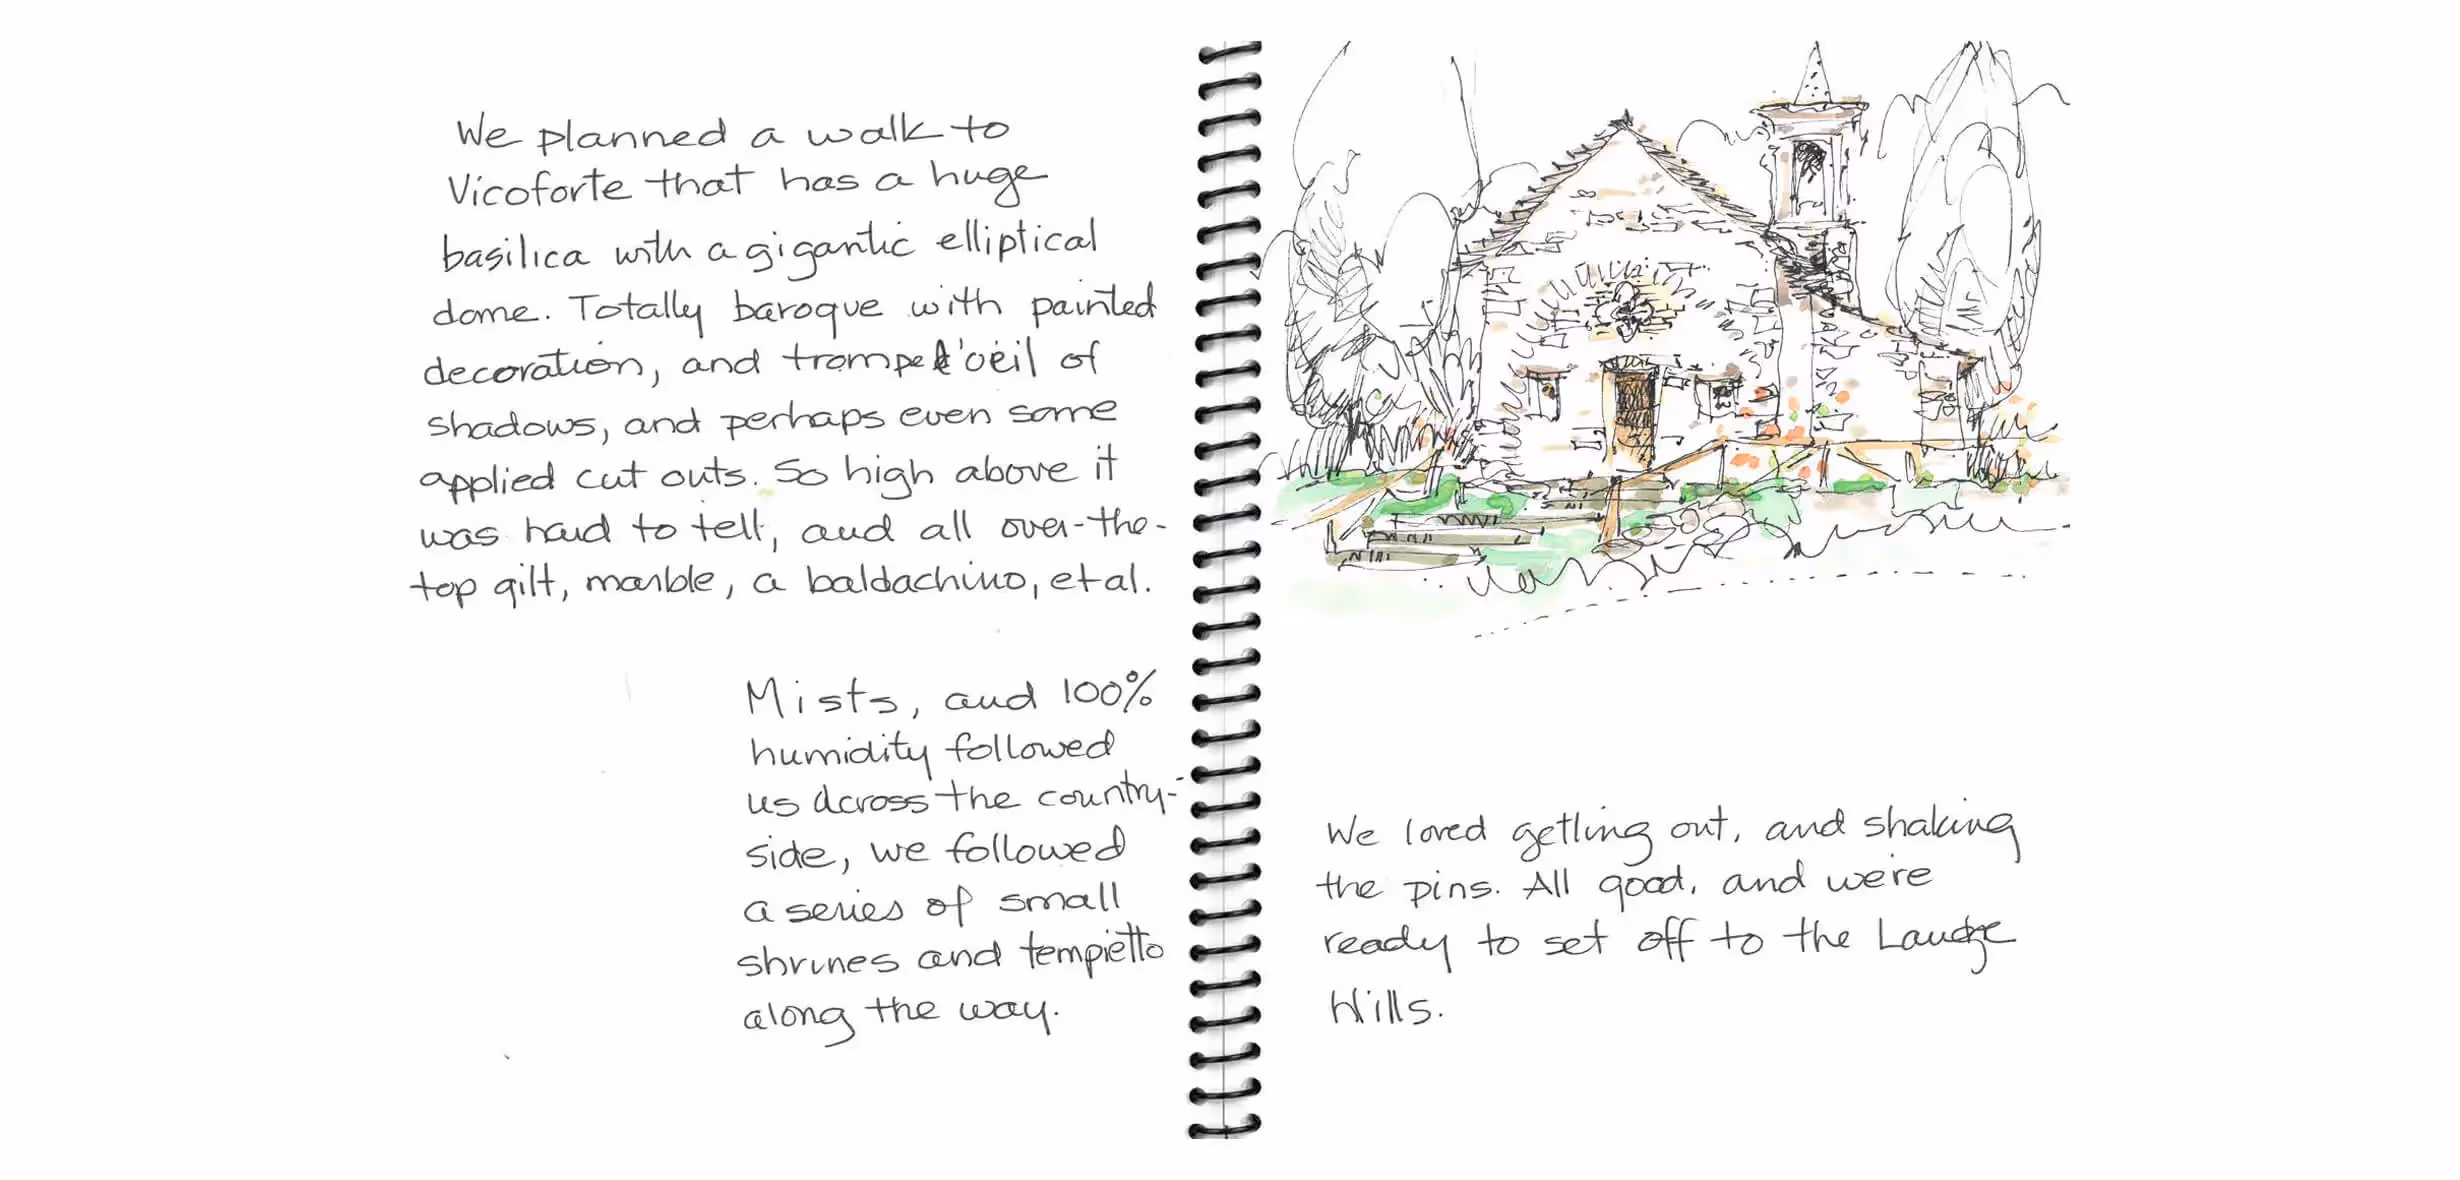 We planned a walk to
Vicoforte that has a huge
basilica with a gigantic elliptical
dome. Totally baroque with painted
decoration, and trompe l'oeil of
shadows, and perhaps even some
applied cut outs. So high above it
was hard to tell, and all over-the-
top gilt, marble, a baldachino, et al.
Mists, and 100%
humidity followed
us across the country-
side, we followed
a series of small
shrines and tempietto
along the way.
We loved getting out, and shaking
the pins. All good, and we're
ready to set off to the
Hills.